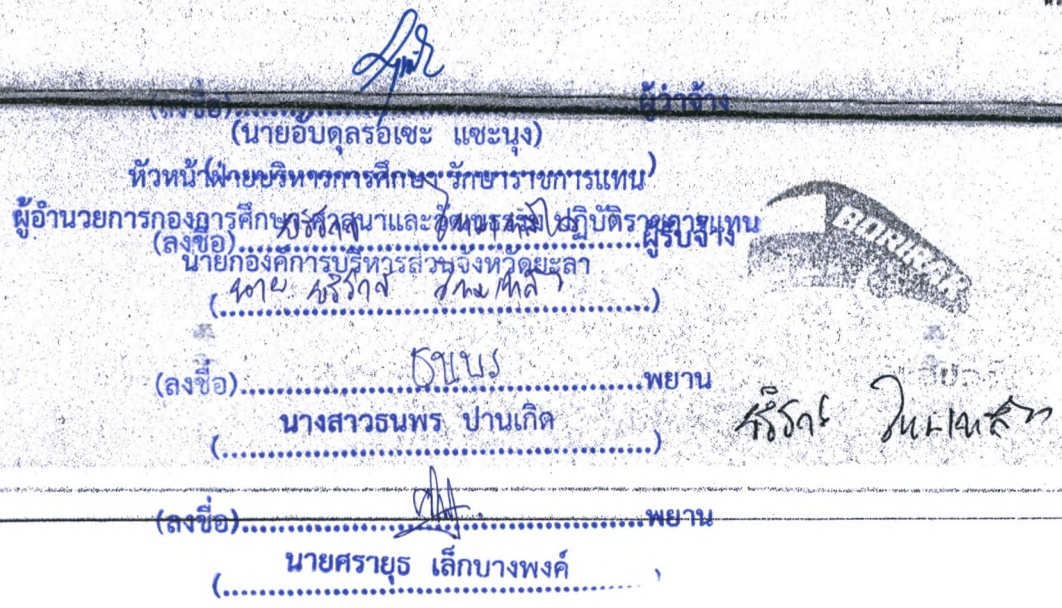 (ลงชื่อ)..........ผู้ว่าจ้าง
(นายอับดุลรอเซะ แซะนุง)
หัวหน้าฝ่ายบริหารการศึกษา รักษาราชการแทน
ผู้อำนวยการกองการศึกษา ศาสนาและวัฒนธรรม ปฏิบัติราชการแทน
(ลงชื่อ)..........ผู้รับจ้าง
นายกองค์การบริหารส่วนจังหวัดยะลา
BORIRAK
(ลงชื่อ)..........ธนพร..........พยาน
นางสาวธนพร ปานเกิด
(ลงชื่อ)..........พยาน
นายศรายุธ เล็กบางพงค์